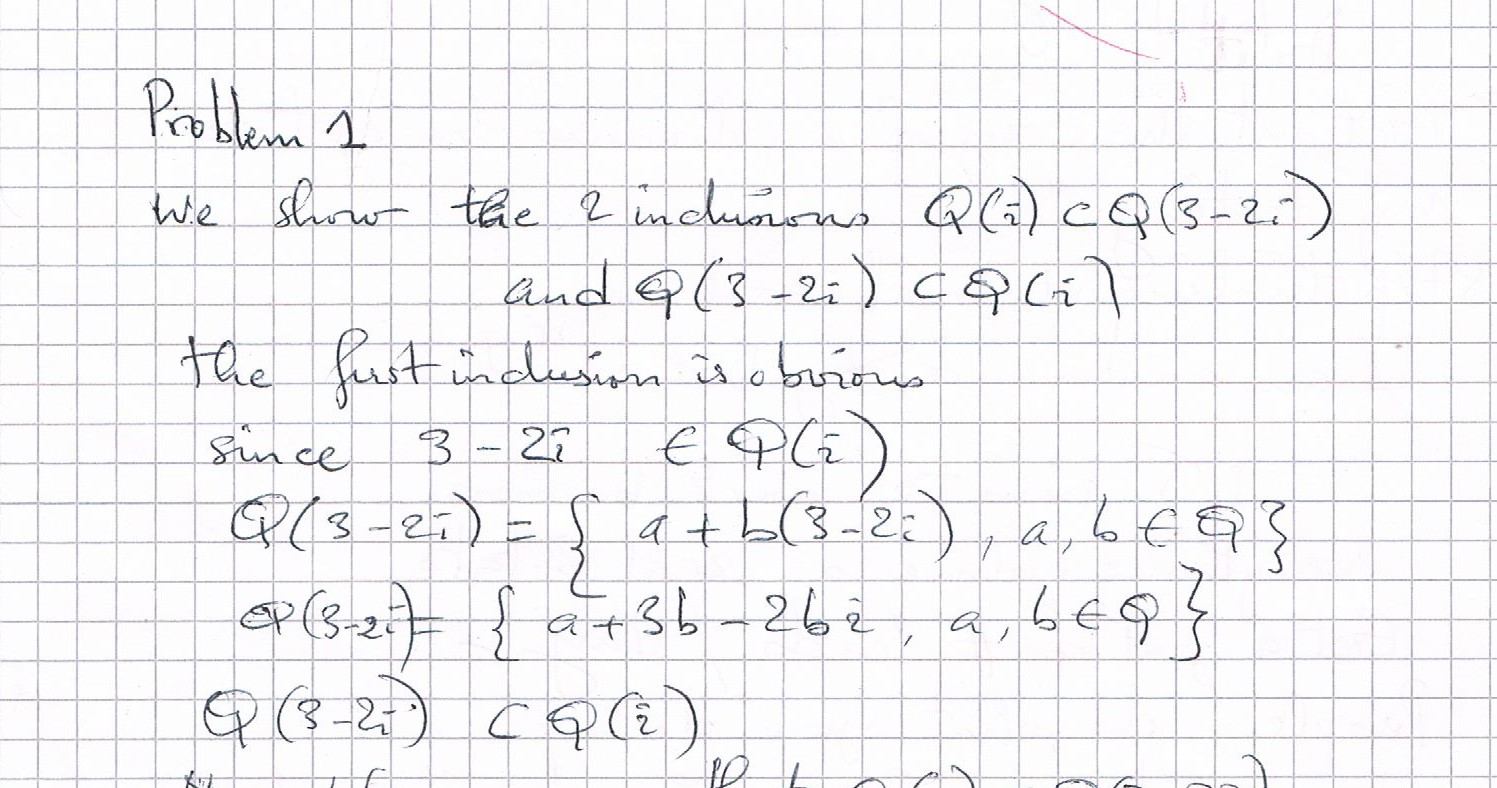 Problem 1
We show the 2 inclusions Q(i) ⊂ Q(3-2i)
and Q(3-2i) ⊂ Q(i)
the first inclusion is obvious
since 3-2i ∈ Q(i)
Q(3-2i) = { a + b(3-2i), a, b ∈ Q }
Q(3-2i) = { a+3b-2bi, a, b ∈ Q }
Q(3-2i) ⊂ Q(i)